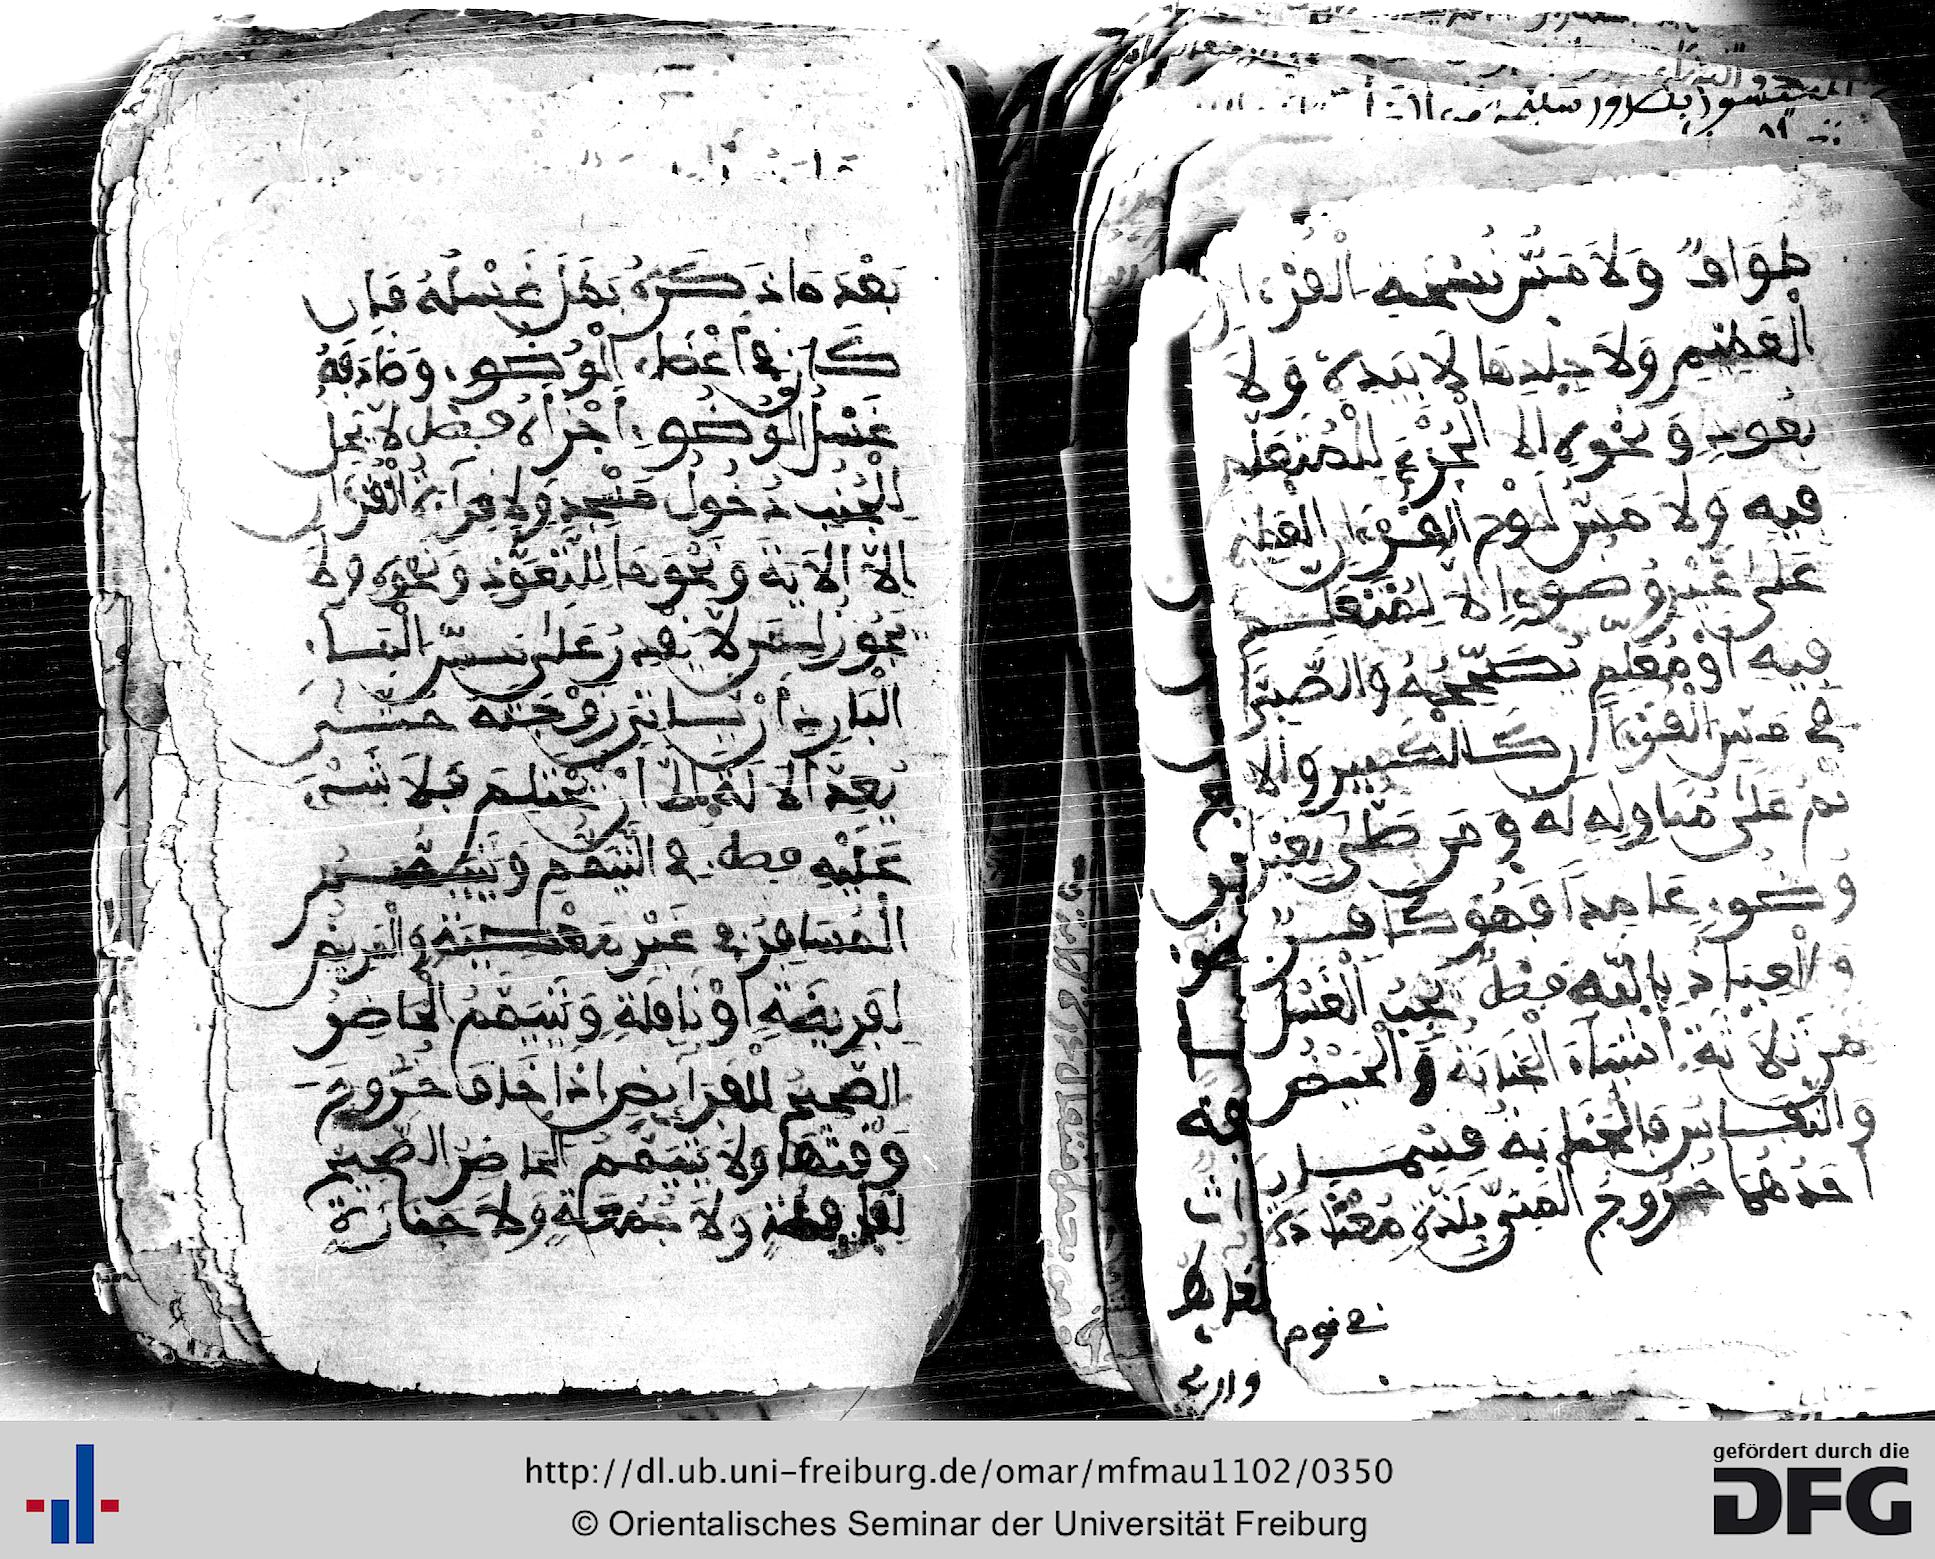 طَوَافٌ وَلَا مَسُّ نُسْخَةِ الْقُرْءَان
الْعَظِيمِ وَلَا جِلْدِهَا لَا بِيَدِهِ وَلَا
بِعُودٍ وَنَحْوِهِ إلا الْجُزْءَ لِلْمُتَعَلِّم
فِيهِ وَلَا مَسُّ لَوْحِ الْقُرْءَانِ الْعَظِيمِ
عَلَى غَيْرِ وُضُوءٍ إلا لِمُتَعَلِّمٍ
فِيهِ أَوْ مُعَلِّمٍ يُصَحِّحُهُ وَالصَّبِيُّ
فِي مَسِّ الْقُرْءَانِ كَالْكَبِيرِ وَالا
ثْمُ عَلَى مُنَاوِلِهِ لَهُ وَمَن صَلَّى بِغَيْرِ
وُضُوءٍ عَامِدًا فَهُوَ كَافِرٌ
والْعِيَاذُ بِاللَّهِ فصل يَجِبُ الْغُسْلُ
مِن ثَلَاثَةِ أَشْيَاءَ الْجَنَابَةُ وَالْحَيْضُ
وَالنِّفَاسُ فَالْجَنَابَةُ قِسْمَانِ
أَحَدُهُمَا خُرُوجُ الْمَنِيِّ بِلَذَّةٍ مُعْتَادَةٍ
في نوم
بَعْدَ مَا ذَكَرَهُ بَطَلَ غُسْلُهُ فَإِن
كَانَ فِي أَعْضَاءِ الْوُضُوءِ وَصَادَفَهُ
غَسْلُ الْوُضُوءِ أَجْزَأَهُ فصل لَا يَحِلُّ
لِلْجُنُبِ دُخُولُ مَسْجِدٍ وَلَا قِرَآءَةُ الْقُرْءَانِ
إِلَّا الْآيَةَ وَنَحْوَهَا لِلتَّعَوُّذِ وَنَحْوِهِ وَلَا
يَجُوزُ لِمَن لَا يَقْدِرُ عَلَى مَسِّ الْمَاء
الْبَارِدِ أَنْ يَاتِيَ زَوْجَتَهُ حَتَّى
يُعِدَّ الْآلَةَ إِلَّا أَنْ يَحْتَلِمَ فَلَا شَيْءَ
عَلَيْهِ فصل فِي التَّيَمُّمِ وَيَتَيَمَّمُ
الْمُسَافِرُ فِي غَيْرِ مَعْصِيَةٍ وَالْمَرِيضُ
لِفَرِيضَةٍ أَوْ نَافِلَةٍ وَيَتَيَمَّمُ الْحَاضِرُ
الصَّحِيحُ لِلْفَرَآئِضِ إِذَا خَافَ خُرُوجَ
وَقْتِهَا وَلَا يَتَيَمَّمُ الْحَاضِرُ الصَّحِيحُ
لِنَافِلَةٍ وَلَا جُمُعَةٍ وَلَا جَنَازَةٍ
http://dl.ub.uni-freiburg.de/omar/mfmau1102/0350
© Orientalisches Seminar der Universität Freiburg
gefördert durch die
DFG